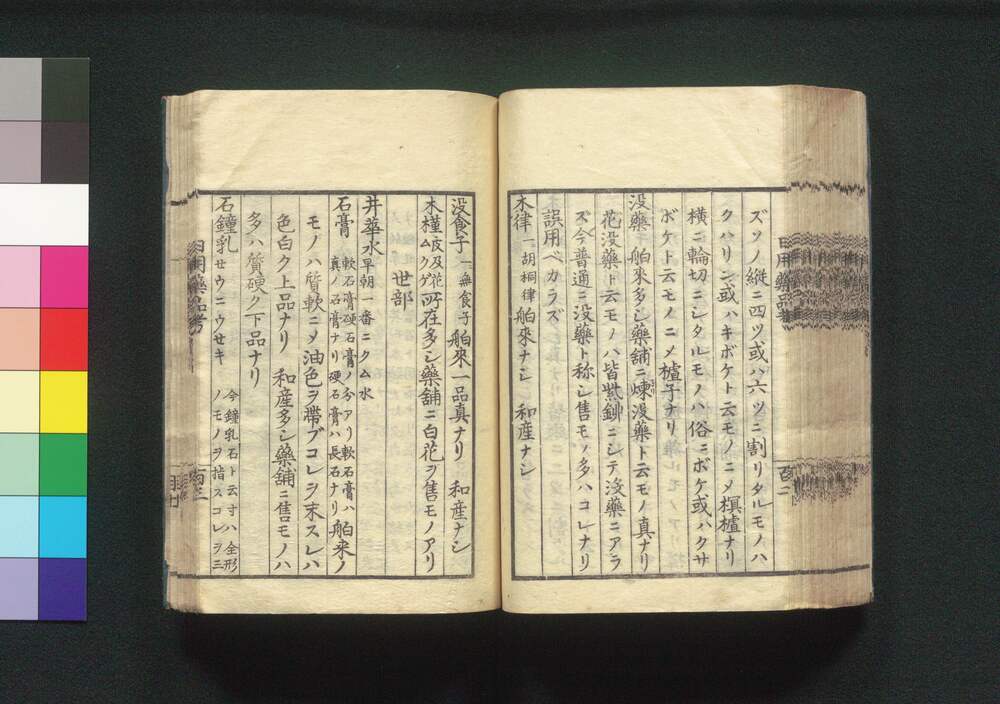 ズツノ縦ニ四ツ或ハ六ツニ割リタルモノハ
クハリン或ハキボケト云モノニメ榠樝ナリ
横ニ輪切ニシタルモノハ俗ニボケ或ハクサ
ボケト云モノニメ樝子ナリ
没藥 舶來多シ藥舗ニ煉没藥ト云モノ真ナリ
花没藥ト云モノハ皆紫鉚ニシテ没藥ニアラ
ズ今普通ニ没藥ト称シ售モノ多ハコレナリ
誤用ベカラズ
木律 一胡桐律 舶來ナシ 和産ナシ
日用藥品考
百二
没食子 一無食子 舶來一品真ナリ 和産ナシ
木槿 皮及花 ムクゲ 所在多シ藥舗ニ白花ヲ售モノアリ
世部
井華水 早朝一番ニクム水
石膏 軟石膏硬石膏ノ分アリ軟石膏ハ 舶来ノ
真ノ石膏ナリ硬石膏ハ長石ナリ
モノハ質軟ニメ油色ヲ帯ブコレヲ末スレハ
色白ク上品ナリ 和産多シ藥舗ニ售モノハ
多ハ質硬ク下品ナリ
石鐘乳 セウニウセキ 今鐘乳石ト云寸ハ全形
ノモノヲ指スコレヲ三
日用藥品考
百三